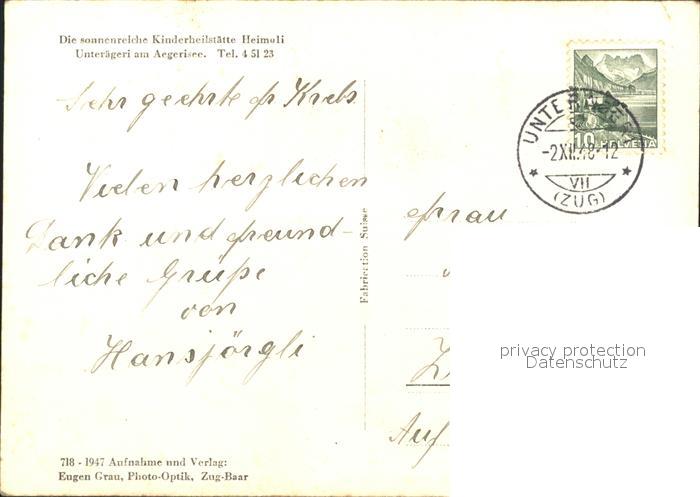 Die sonnenreiche Kinderheilstätte Heimeli
Unterägeri am Aegerisee. Tel. 4 51 23
Sehr geehrte Fr Krebs
Vielen herzlichen
Dank und freund-
liche Grüße
von
Hansjörgli
Fabrication Suisse
10 HELVETIA
UNTERÄGERI
-2.XII.48-12
VII
(ZUG)
Frau
privacy protection
Datenschutz
Auf
718 - 1947 Aufnahme und Verlag:
Eugen Grau, Photo-Optik, Zug-Baar